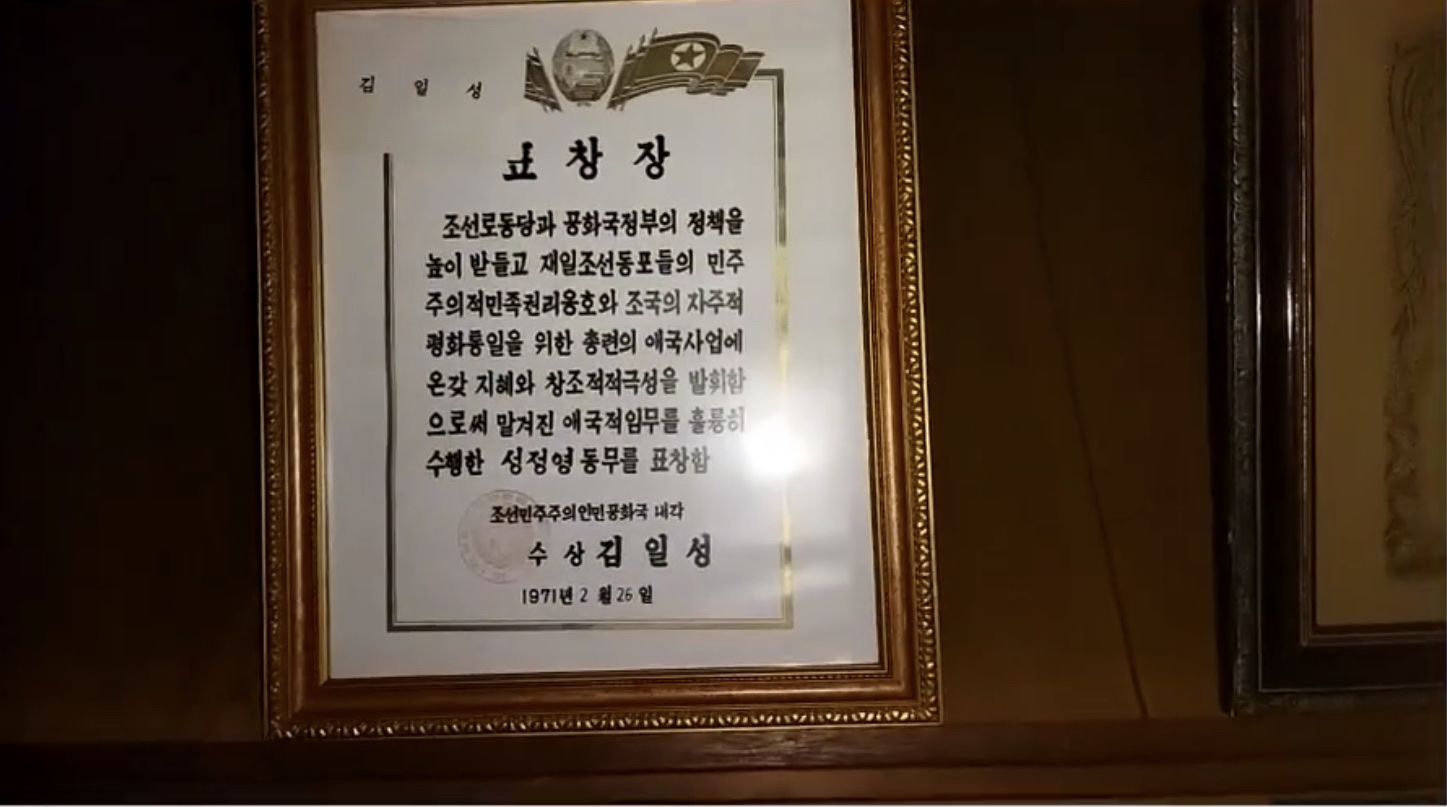 김 일 성
표 창 장
조선로동당과 공화국정부의 정책을
높이 받들고 재일조선동포들의 민주
주의적민족권리옹호와 조국의 자주적
평화통일을 위한 총련의 애국사업에
온갖 지혜와 창조적적극성을 발휘함
으로써 맡겨진 애국적임무를 훌륭히
수행한 성정영 동무를 표창함
조선민주주의인민공화국 내각
수 상 김 일 성
1971년 2 월 26 일